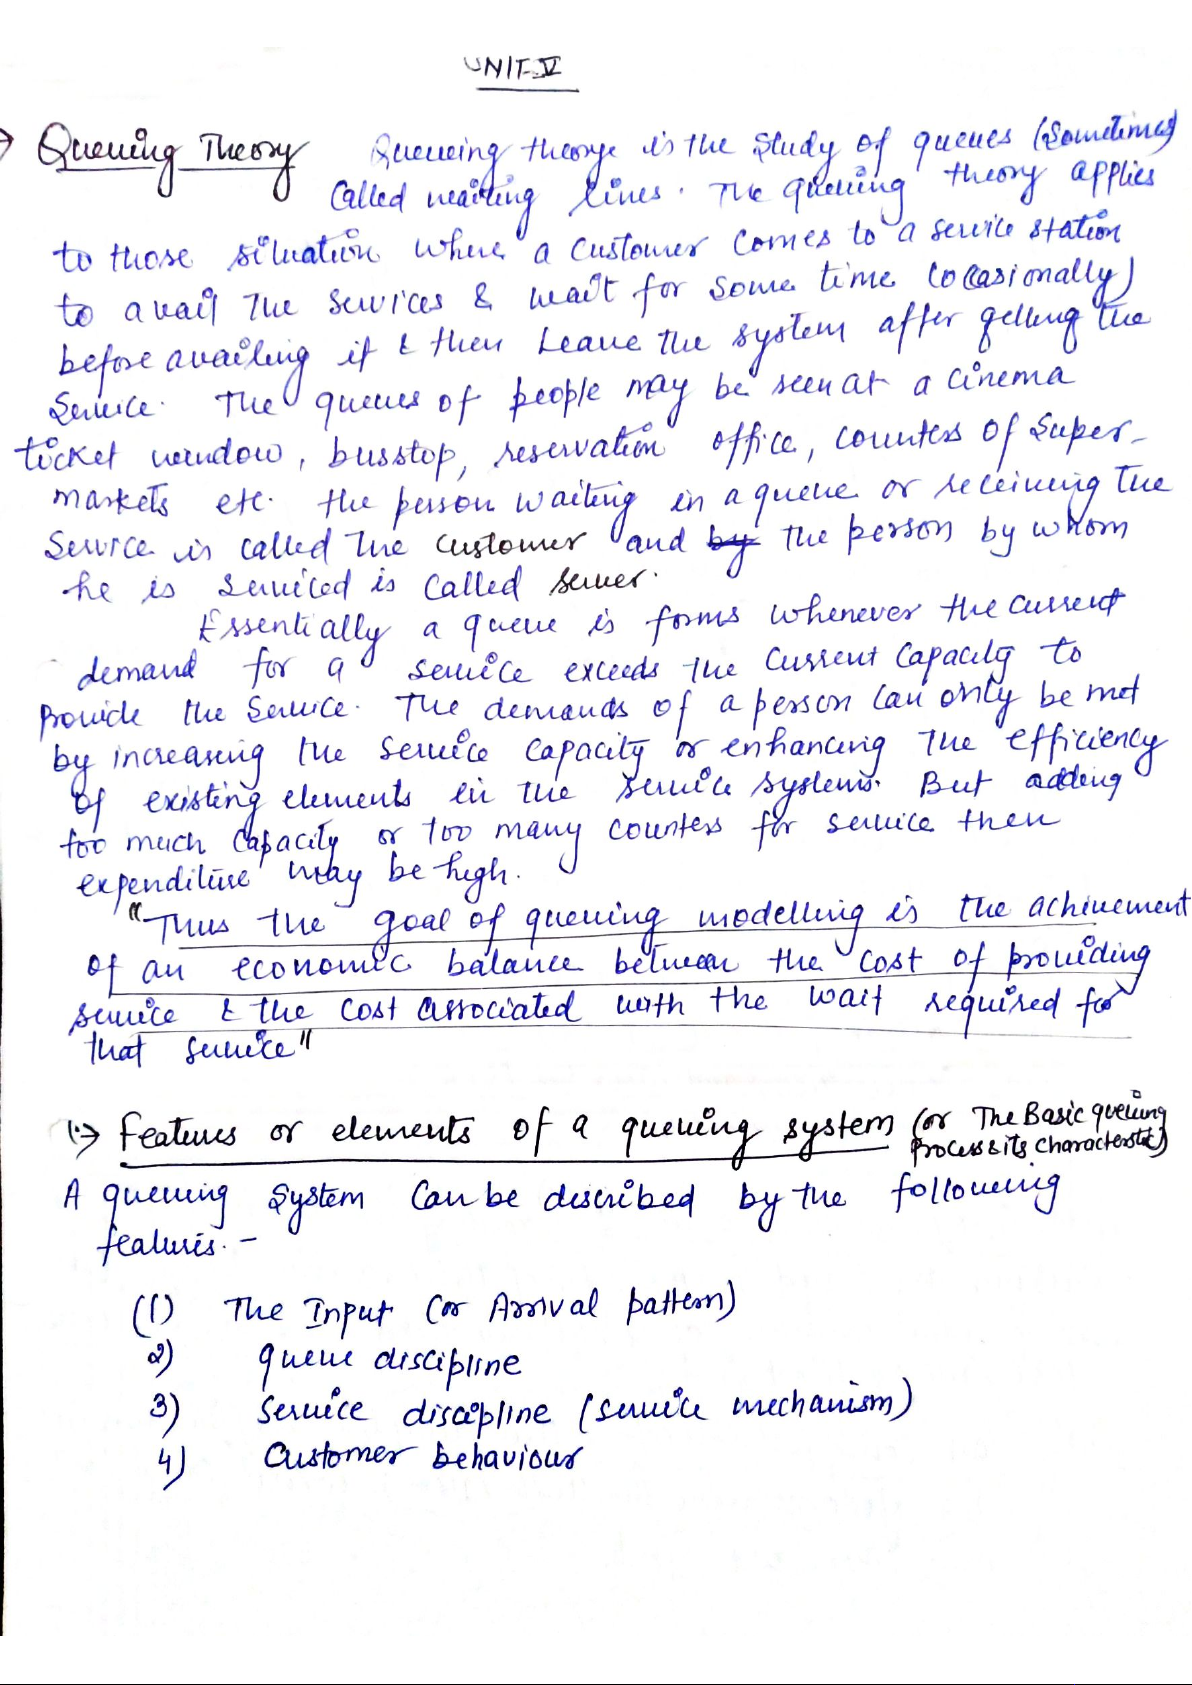 UNIT-V
→ Queuing Theory Queueing theorye is the study of queues (Sometimes)
Called waiting lines. The queuing theory applies
to those situation where a customer comes to a service station
to avail The services & wait for some time (occasionally)
before availing it & then Leave the system after getting the
Service. The queues of people may be seen at a cinema
ticket window, busstop, reservation office, counters of Super-
markets etc. the person waiting in a queue or receiving The
Service is called The customer and by the person by whom
he is serviced is called server.
Essentially a queue is forms whenever the current
demand for a service exceeds the current capacity to
provide the service. The demands of a person can only be met
by increasing the service capacity or enhancing The efficiency
of existing elements in the service systems. But adding
too much capacity or too many counters for service then
expenditure may be high.
"Thus the goal of queuing modelling is the achivement
of an economic balance between the cost of providing
service & the cost associated with the wait required for
that service"
1.→ features or elements of a queuing system (or The Basic queuing
Process & its characterstic)
A queuing System can be described by the following
features. -
(1) The Input (or Arrival pattern)
2) queue discipline
3) Service discipline (service mechanism)
4) Customer behaviour